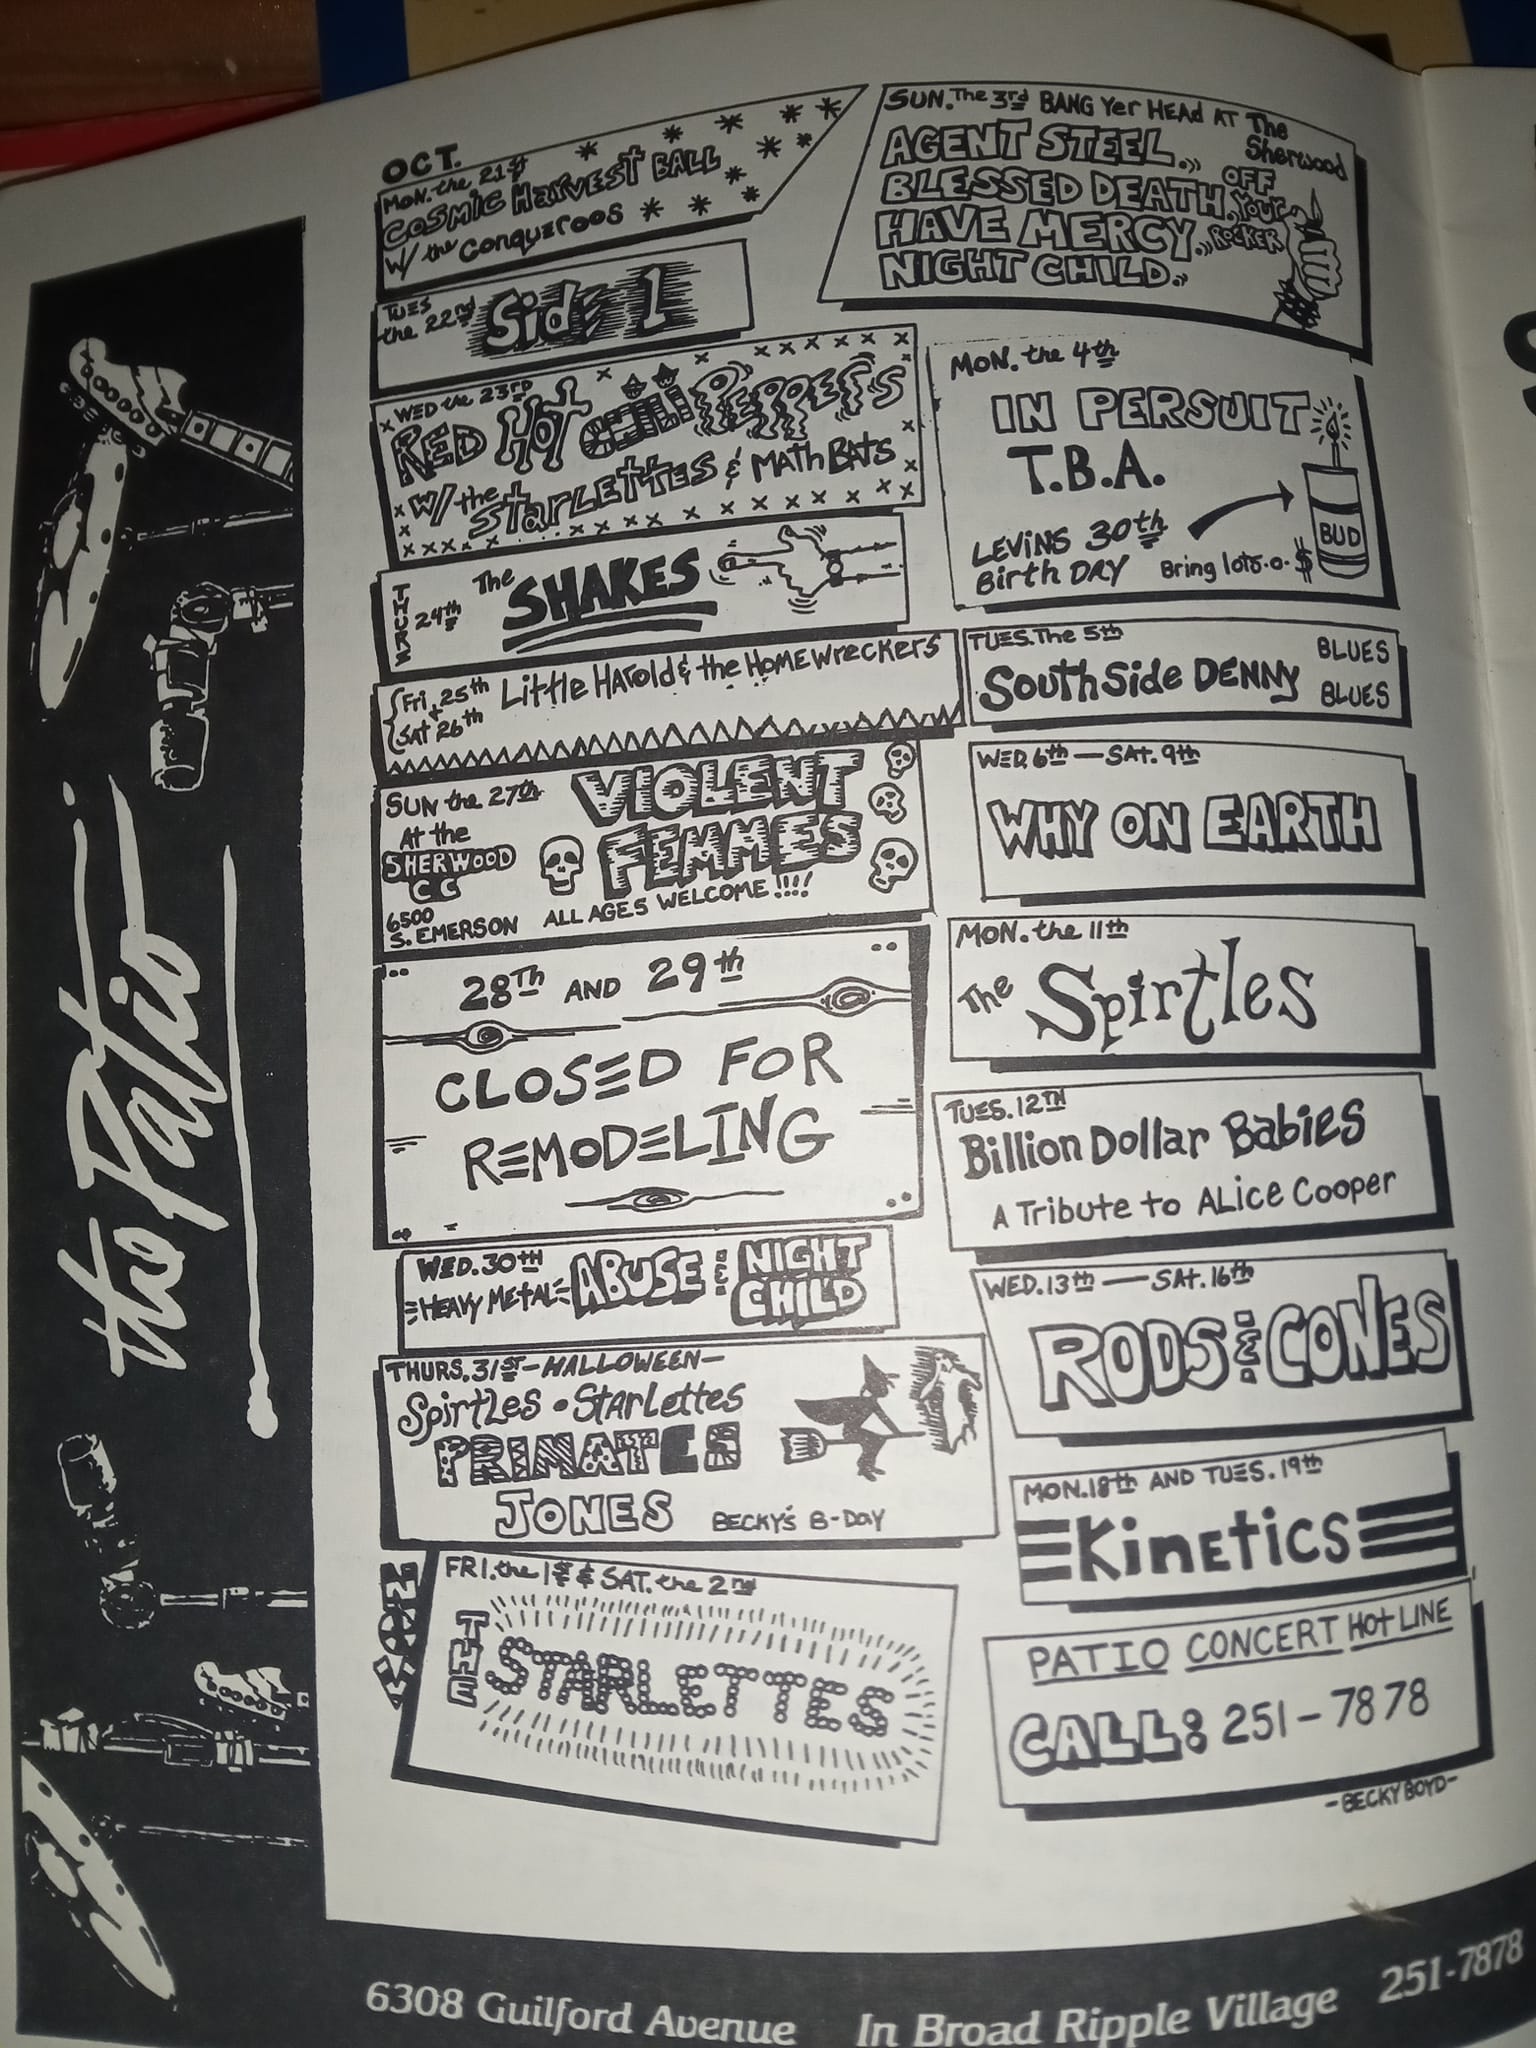 the Patio
OCT.
MON. the 21st
COSMIC HARVEST BALL
W/ the Conqueroos
TUES
the 22nd
Side 1
WED the 23RD
RED HOT CHILI PEPPERS
W/ the STARLETTES & MATH BATS
THURS
24th
The SHAKES
Fri. 25th
+
SAT 26th
Little Harold & the HOMEWreckers
SUN the 27th
At the
SHERWOOD
CC
6500
S. EMERSON
VIOLENT
FEMMES
ALL AGES WELCOME !!!!
28Th AND 29th
CLOSED FOR
REMODELING
WED. 30TH
HEAVY METAL
ABUSE & NIGHT
CHILD
THURS. 31ST - HALLOWEEN -
Spirtles • Starlettes
PRIMATES
JONES
BECKY'S B-DAY
NOV.
FRI. the 1st & SAT. the 2nd
THE STARLETTES
SUN. The 3rd BANG Yer HEAd AT The
Sherwood
AGENT STEEL..
BLESSED DEATH..
HAVE MERCY..
NIGHT CHILD..
OFF
Your
ROCKER
MON. the 4th
IN PERSUIT
T.B.A.
LEVINS 30th
Birth DAY
Bring lots-o-$
BUD
TUES. The 5th
SouthSide DENNY
BLUES
BLUES
WED. 6th — SAT. 9th
WHY ON EARTH
MON. the 11th
The Spirtles
TUES. 12TH
Billion Dollar Babies
A Tribute to ALice Cooper
WED. 13th — SAT. 16th
RODS & CONES
MON. 18th AND TUES. 19th
Kinetics
PATIO CONCERT HOT LINE
CALL: 251-7878
-BECKY BOYD-
6308 Guilford Avenue In Broad Ripple Village 251-7878